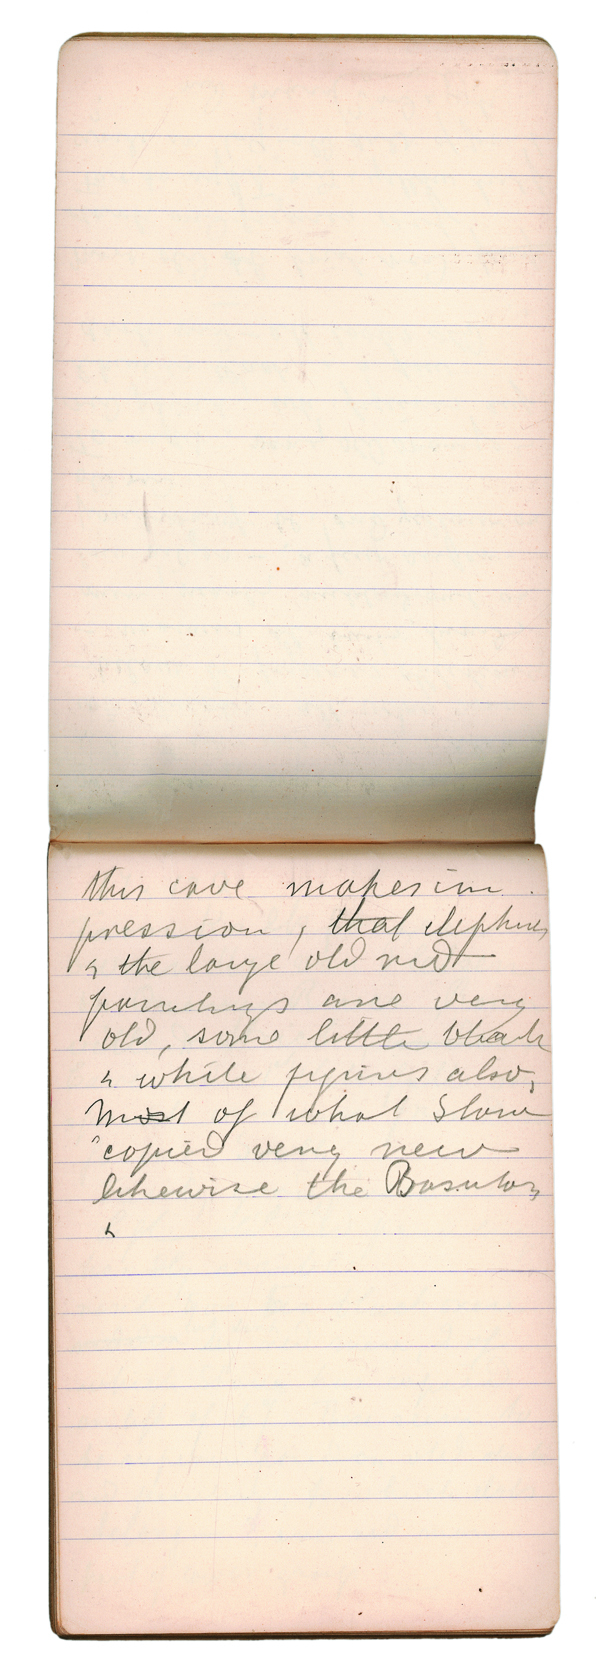 this cave makes im
pression, that elephants
& the large old red
paintings are very
old, some little black
& white figures also,
most of what Stow
copied very new
likewise the Basutos
&